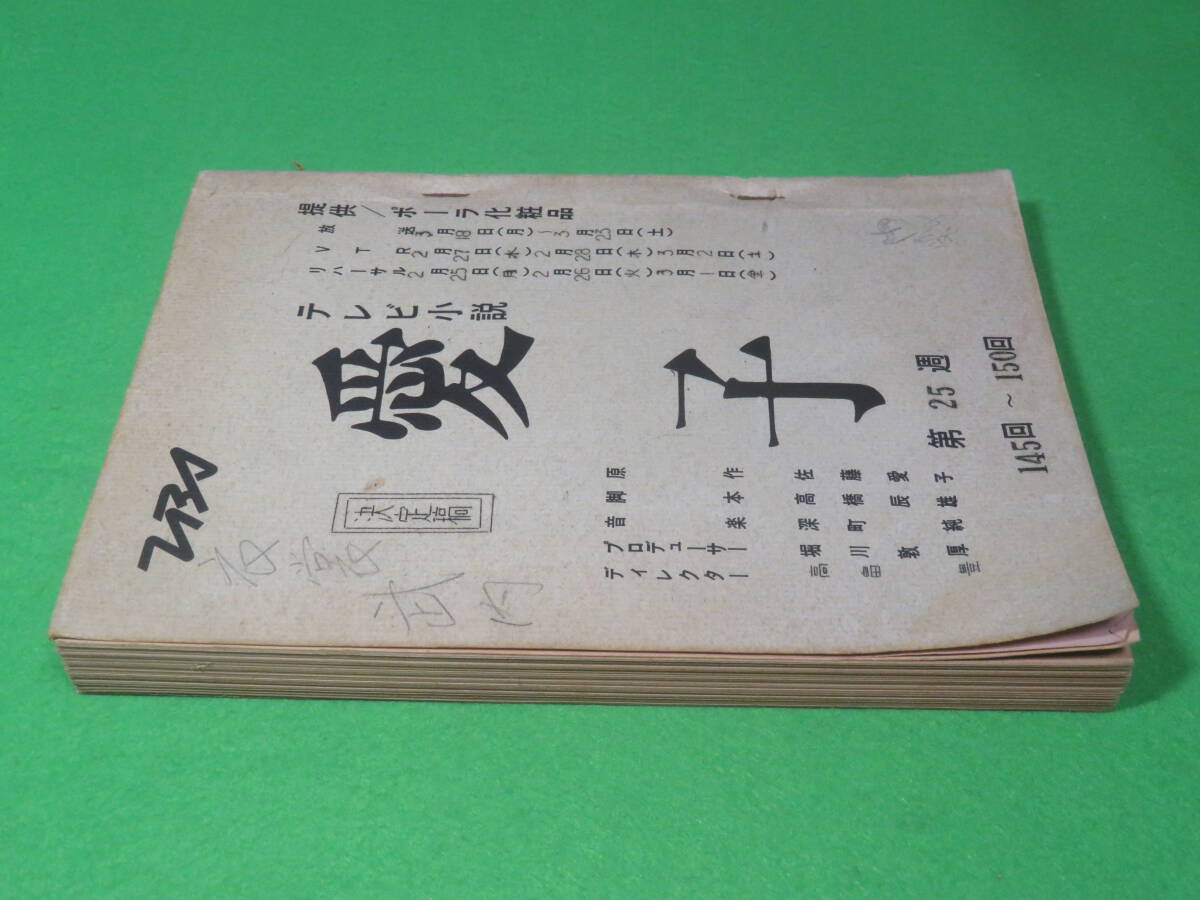 提供/ポーラ化粧品
放送3月18日(月)~3月23日(土)
VTR2月27日(水)2月28日(木)3月2日(土)
リハーサル2月25日(月)2月26日(火)3月1日(金)
テレビ小説
愛子
第25週
145回~150回
原作 佐藤愛子
脚本 高橋辰雄
音楽 深町純
プロデューサー 堀川敦厚
ディレクター 高畠豊
決定稿
TBS
衣裳
武内